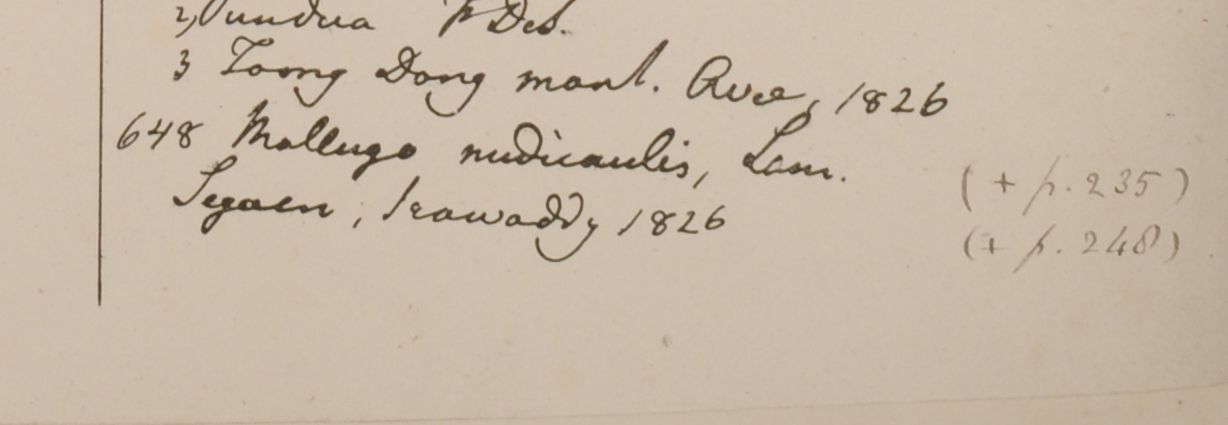 2, Pundua F DeS.
3 Toong Dong mont. Avae, 1826
648 Mollugo nudicaulis, Lam.
Segaen, Irawaddy 1826
(+ p. 235)
(+ p. 248)